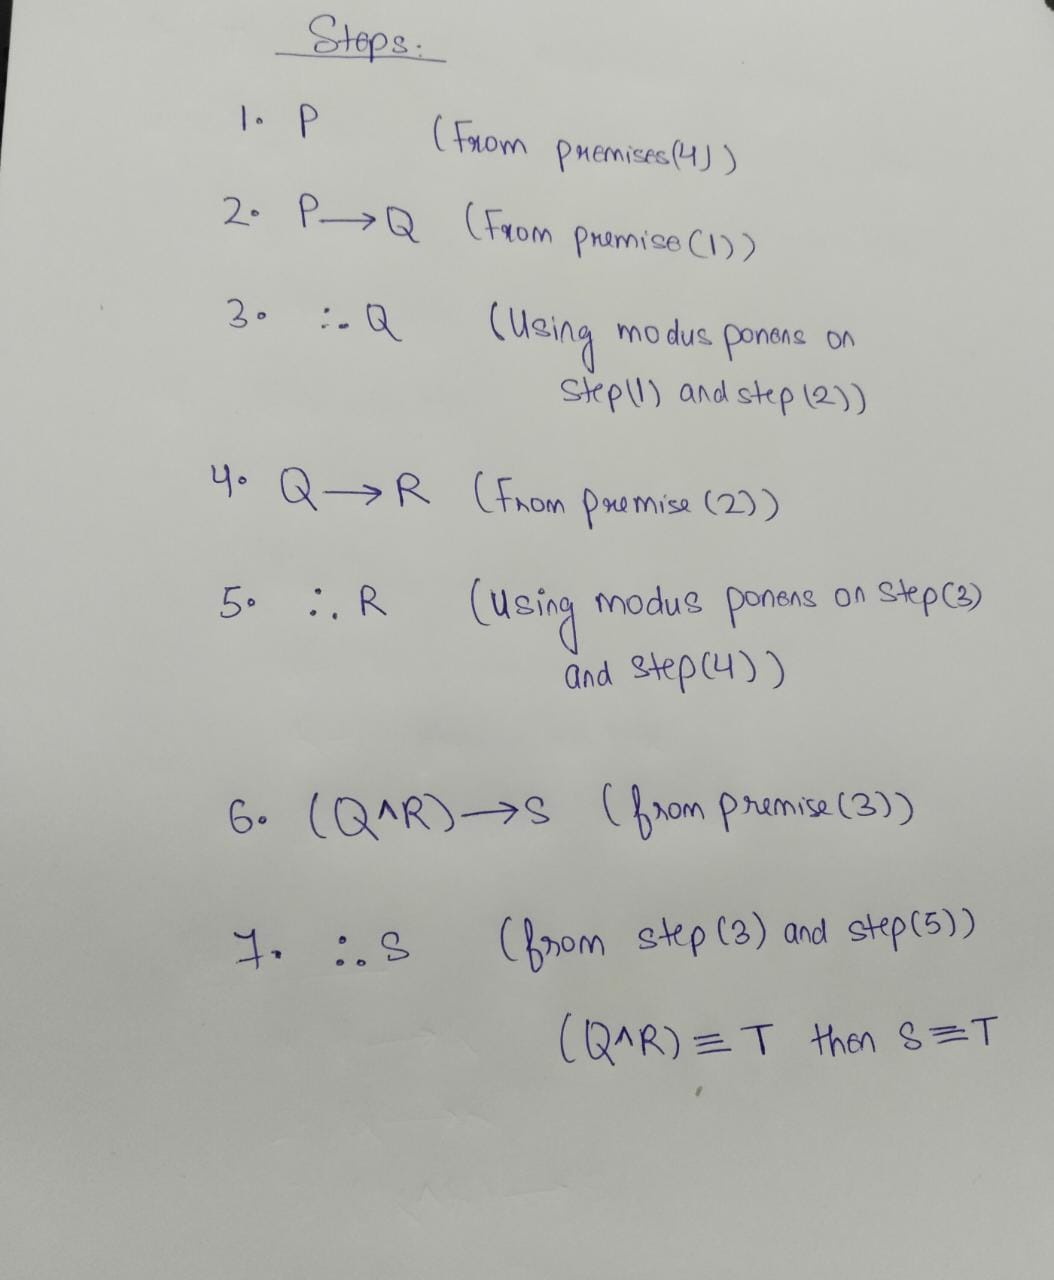 Steps:
1. P (From premises(4))
2. P→Q (From premise(1))
3. ∴ Q (Using modus ponens on
step(1) and step(2))
4. Q→R (From premise(2))
5. ∴ R (Using modus ponens on step(3)
and step(4))
6. (Q∧R)→S (from premise(3))
7. ∴ S (from step(3) and step(5))
(Q∧R)≡T then S≡T